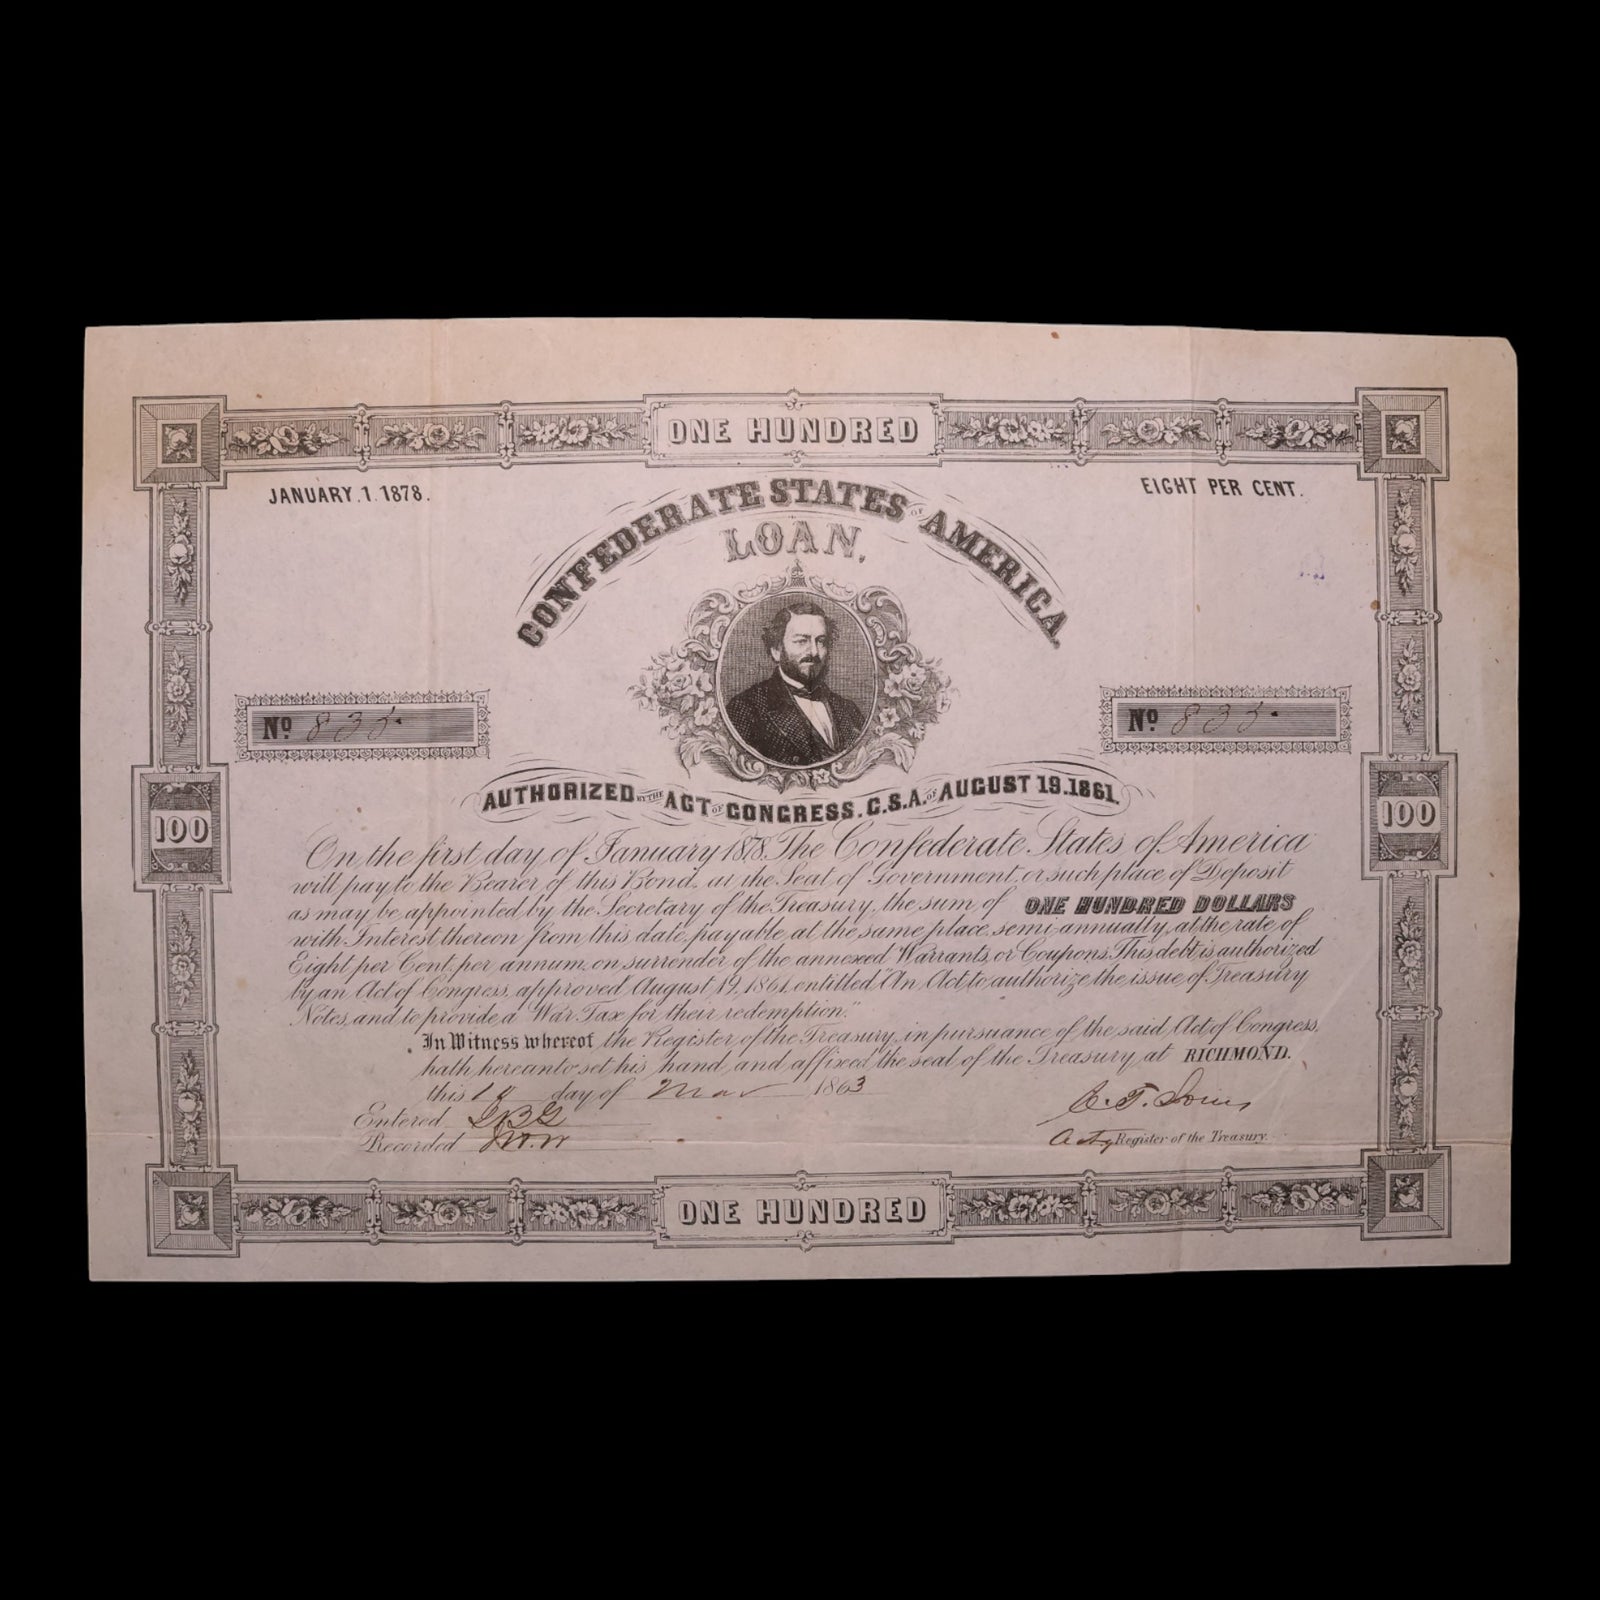 ONE HUNDRED
JANUARY.1.1878.
EIGHT PER CENT.
CONFEDERATE STATES OF AMERICA
LOAN,
No 835.
No 835.
AUTHORIZED BY THE ACT OF CONGRESS. C.S.A. OF AUGUST 19.1861.
100
100
On the first day of January 1878. The Confederate States of America
will pay to the Bearer of this Bond, at the Seat of Government, or such place of Deposit
as may be appointed by the Secretary of the Treasury, the sum of ONE HUNDRED DOLLARS
with Interest thereon from this date, payable at the same place semi-annually, at the rate of
Eight per Cent. per annum, on surrender of the annexed Warrants, or Coupons. This debt is authorized
by an Act of Congress, approved August 19, 1861, entitled "An Act to authorize the issue of Treasury
Notes, and to provide a War Tax for their redemption."
In Witness whereof, the Register of the Treasury, in pursuance of the said Act of Congress,
hath hereunto set his hand, and affixed the seal of the Treasury, at RICHMOND.
this day of Mar 1863
Entered
Recorded
Register of the Treasury.
ONE HUNDRED